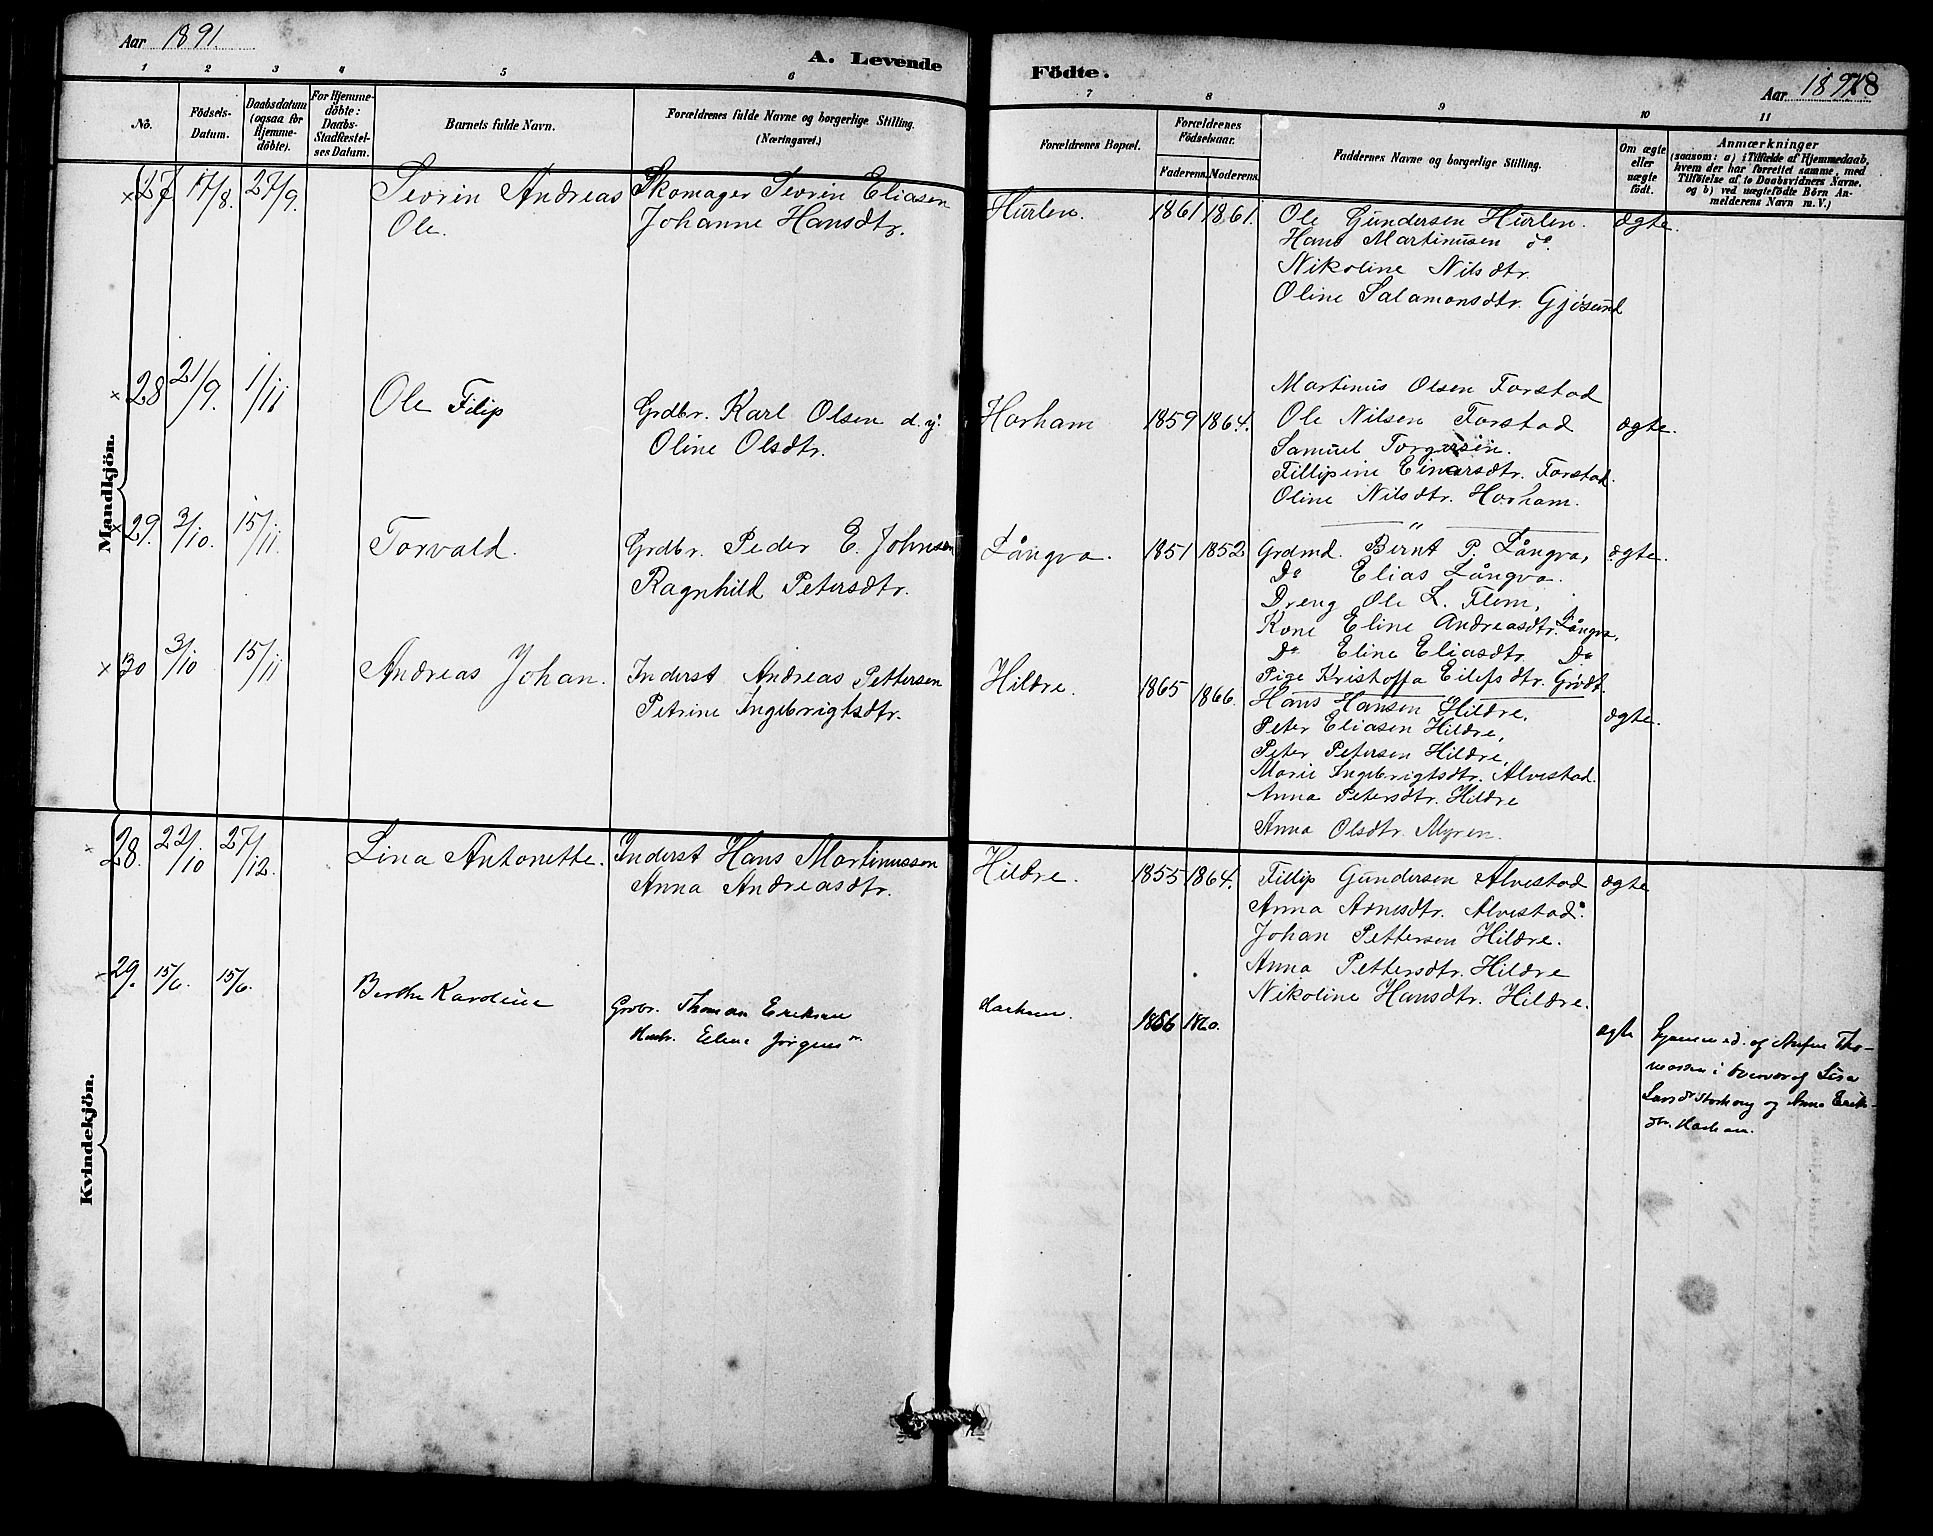 Aar 1891.
A. Levende
Födte.
Aar 1891
78
1 2 3 4 5 6
7 8 9 10 11
No.
Födsels-
Datum.
Daabsdatum
(ogsaa for
Hjemme-
döbte).
For Hjemme-
döbte:
Daabs-
Stadfæstel-
ses Datum.
Barnets fulde Navn.
Forældrenes fulde Navne og borgerlige Stilling.
(Næringsvei.)
Forældrenes Bopæl.
Forældrenes
Födselsaar.
Faderens. Moderens.
Faddernes Navne og borgerlige Stilling.
Om ægte
eller
uægte
födt.
Anmærkninger
(saasom: a) i Tilfælde af Hjemmedaab,
hvem der har forrettet samme, med
Tilföielse af to Daabsvidners Navne.
og b) ved uægtefödte Börn An-
melderens Navn m. V.)
Mandkjön.
× 27 17/8. 27/9. Sevrin Andreas Skomager Sevrin Eliasen
Ole. Johanne Hansdtr.
Hurlen. 1861 1861. Ole Gundersen Hurlen. ægte.
Hans Martinusen do.
Nikoline Nilsdtr.
Oline Salamonsdtr. Gjøsund
× 28 21/9. 1/11 Ole Filip Grdbr. Karl Olsen d.y.
Oline Olsdtr.
Martinus Olsen Farstad
Harham 1859 1864. Ole Nilsen Farstad ægte.
Samuel
Fillipine Einarsdtr. Farstad.
Oline Nilsdtr. Harham.
× 29. 3/10. 15/11. Torvald. Grdbr. Peder E. Johnsen
Ragnhild Petersdtr.
Långva. 1851 1852 Grdmd. Bernt P. Långva, ægte.
Do Elias Långva.
Dreng Ole L. Flem,
Kone Eline Andreasdtr. Långva,
Do Eline Eliasdtr. Do
Pige Kristoffa Eilefsdtr. Grødt.
× 30 3/10 15/11 Andreas Johan. Inderst Andreas Pettersen
Petrine Ingebrigtsdtr.
Hildre. 1865 1866. Hans Hansen Hildre, ægte.
Peter Eliasen Hildre,
Peter Petersen Hildre,
Marie Ingebrigtsdtr. Alvestad.
Anna Petersdtr. Hildre
Anna Olsdtr. Myren.
Kvindekjön.
× 28. 22/10 27/12. Lina Antonette. Inderst Hans Martinussen
Anna Andreasdtr.
Hildre. 1855 1864. Fillip Gundersen Alvestad ægte
Anna Arnesdtr. Alvestad.
Johan Pettersen Hildre.
Anna Pettersdtr. Hildre
Nikoline Hansdtr. Hildre.
29. 15/6. 15/6. Berthe Karoline Grdbr. Thomas Eriksen
Hustr. Eline Jørgens
Harham. 1856 1860. ægte Hjemmed. af Tho-
massen i Overvær af Lisa
Larsdtr og Anna Erik-
dtr. Harham.